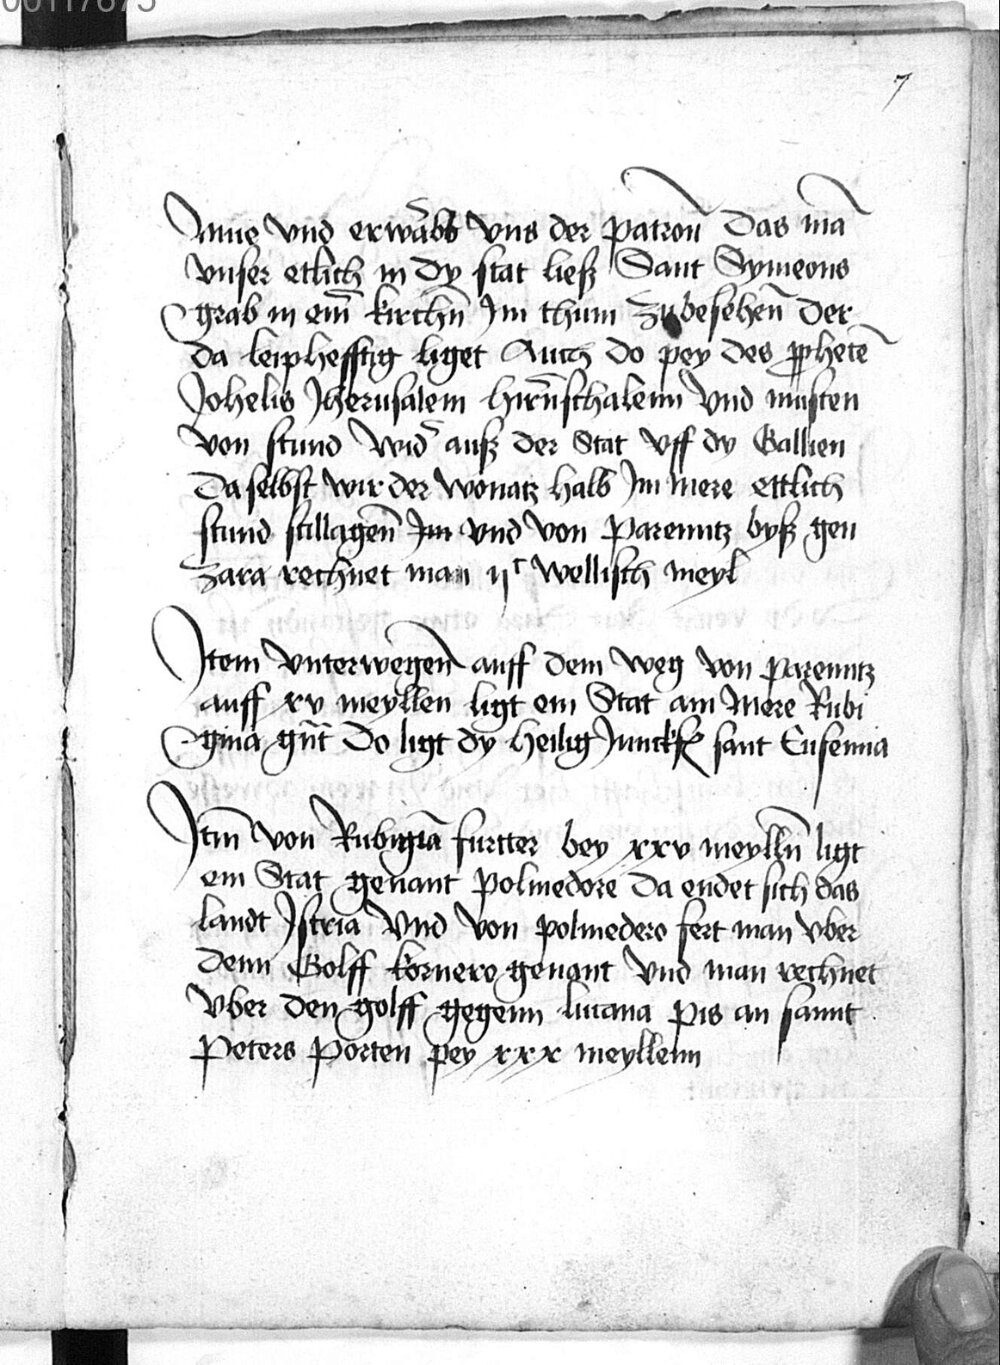 00117875
7
Inne vnd erwarb vns der patron das mā
vnser etlich in dy stat ließ Sant Symeons
grab in eim̄ kirchn̄ Im thum zu besehen̄ der
da leiphefftig liget Auch do pey des ꝓphetē
Johelis Jherusalem hirn̄schalenn vnd musten
von stund wid̓ auß der Stat vff dy Gallien
Daselbst wir der wonatz halb Im mere ettlich
stund stillagen̄ Im vnd von Parenntz byß gen
Zara rechnet man ijc wellisch meyl
Item vnterwegen̄ auff dem weg von parenntz
auff xv meyllen ligt ein Stat am Mere Rubi
gina gn̄t Do ligt dy heilig Junckf sant Eufemia
Itm̄ von Rubigīa furtter bey xxv meylln̄ ligt
ein Stat genant polmedore Da endet sich das
landt Istria vnd von polmedero fert man vber
denn Golff kornero genant vnd man rechnet
vber den golff gegenn lutana pis an sannt
Peters Porten pey xxx meyllenn